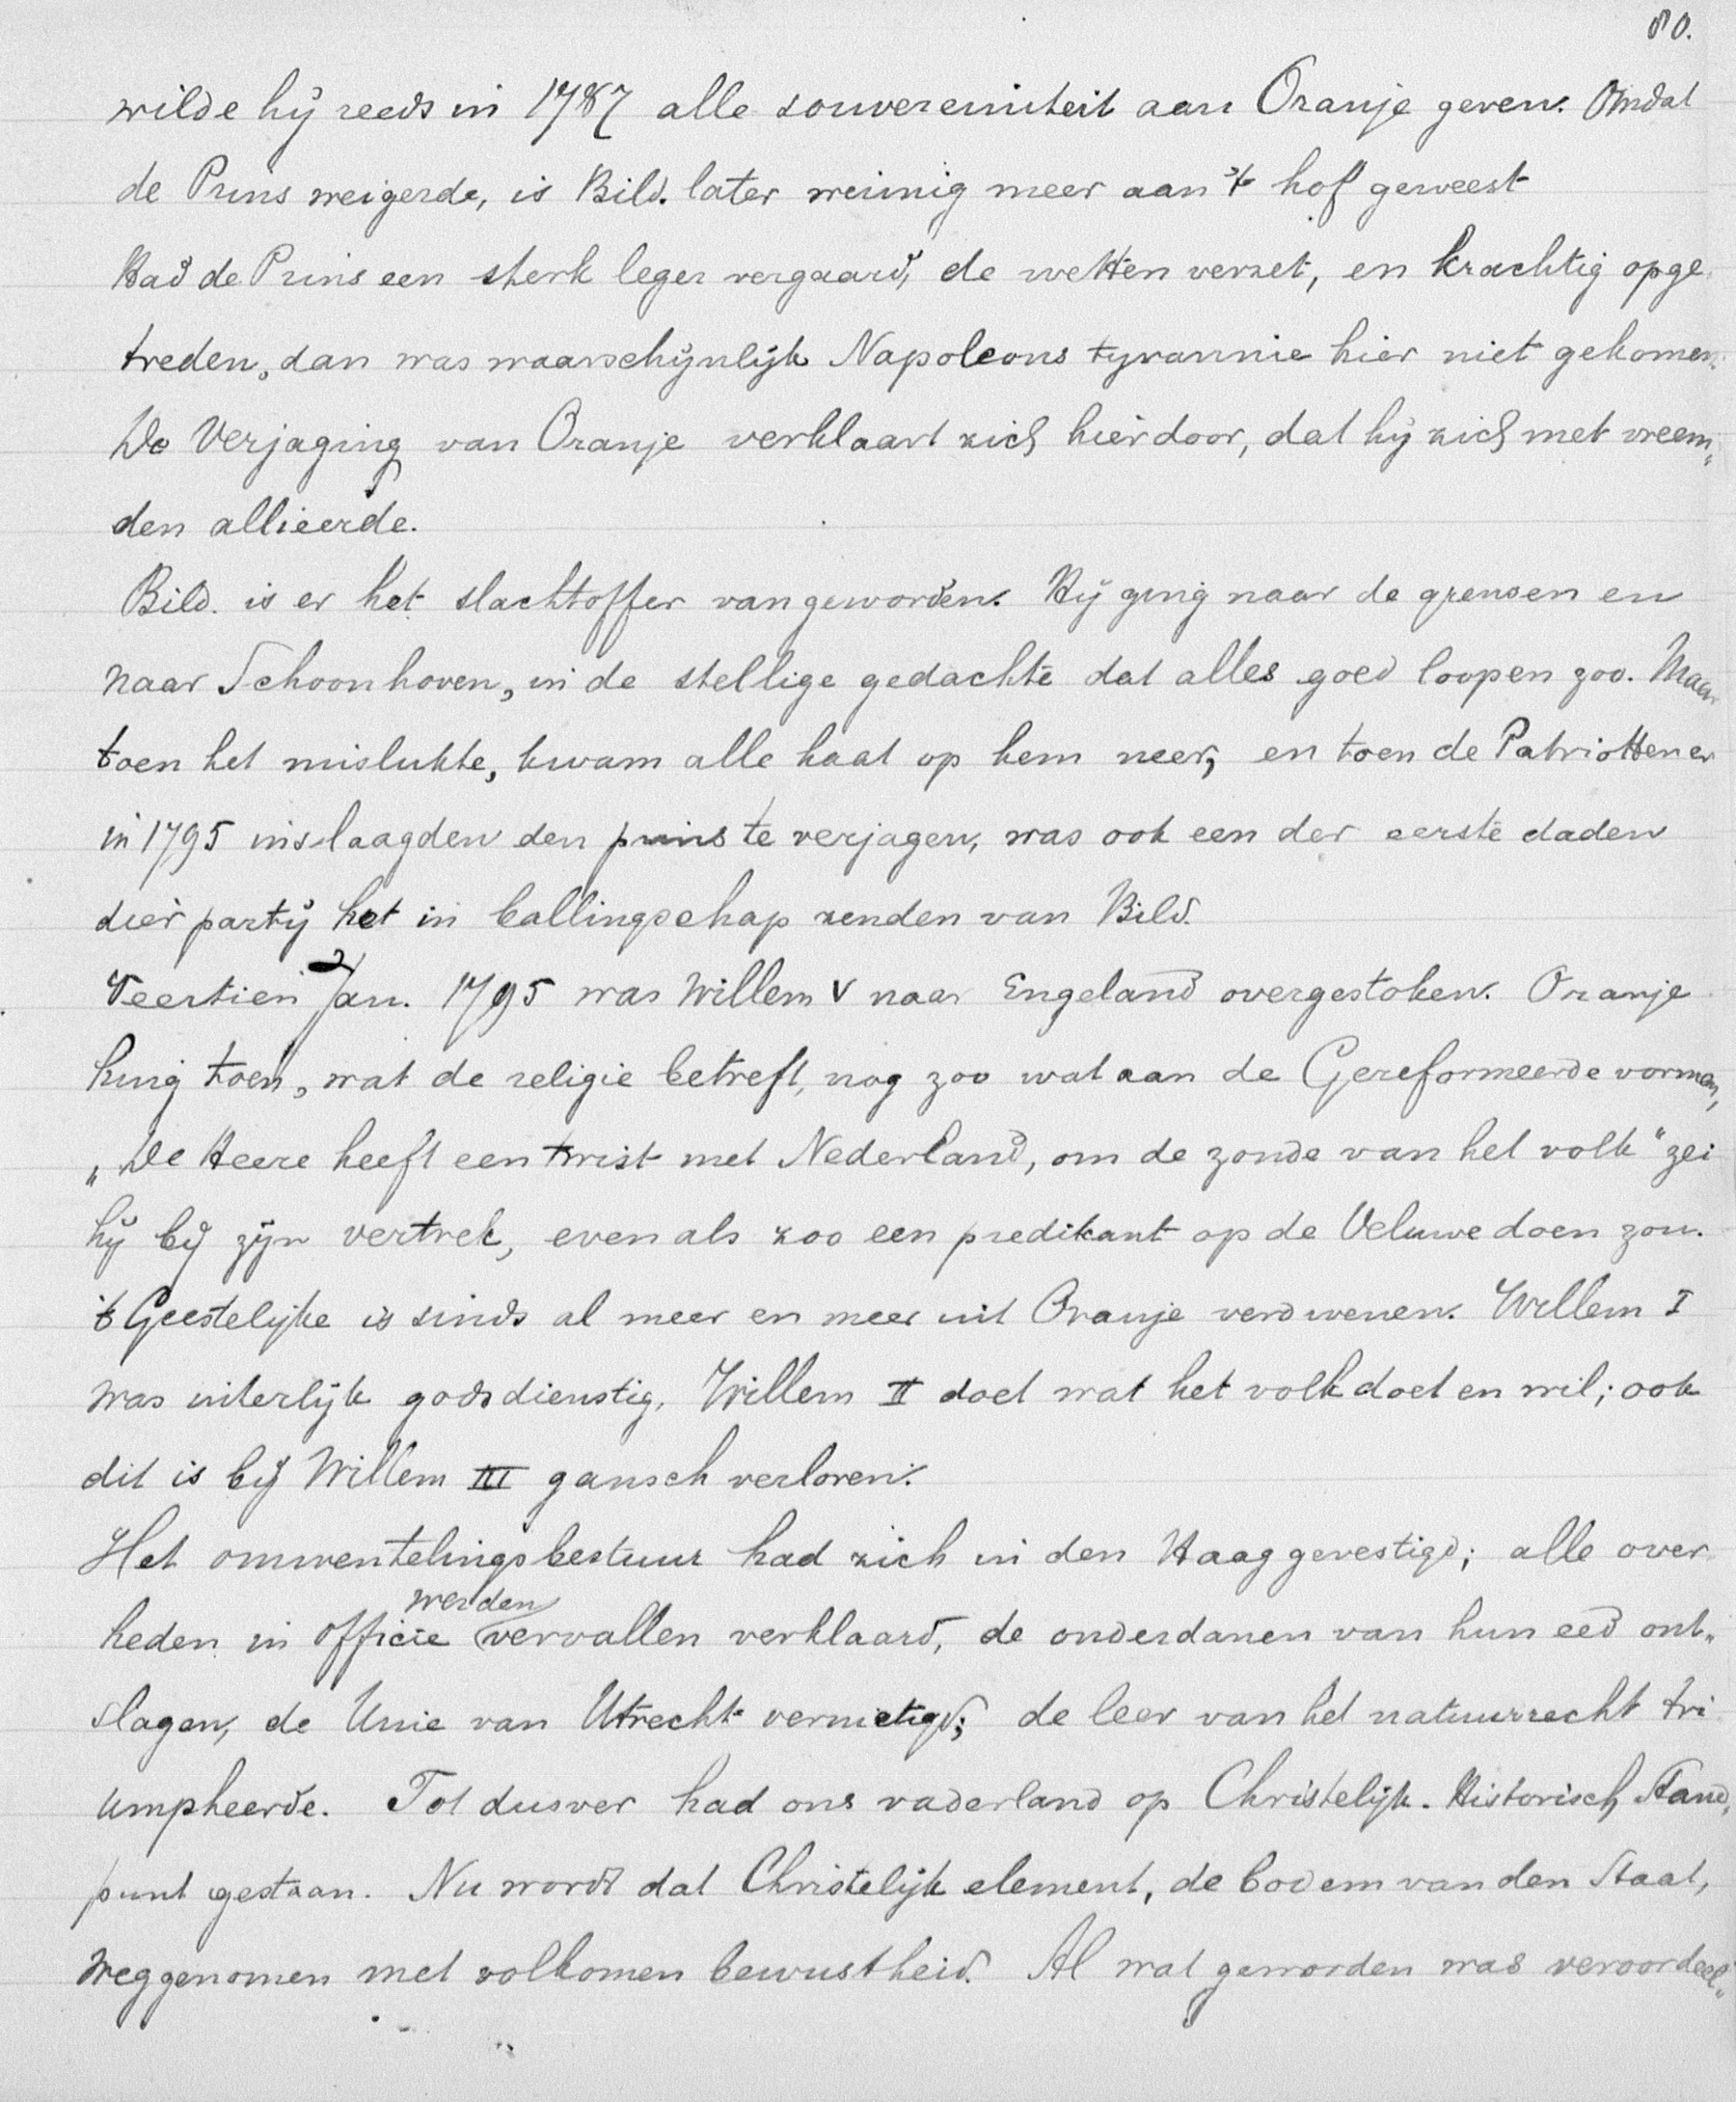 80.
wilde hij reeds in 1787 alle souvereiniteit aan Oranje geven. Omdat
de Prins weigerde, is Bild. later weinig meer aan 't hof geweest
Had de Prins een sterk leger vergaard, de wetten verzet, en krachtig opge
treden, dan was waarschijnlijk Napoleons tyrannie hier niet gekomen.
De Verjaging van Oranje verklaart zich hierdoor, dat hij zich met vreem„
den allieerde.
Bild. is er het slachtoffer van geworden. Hij ging naar de grensen en
naar Schoonhoven, in de stellige gedachte dat alles goed loopen zoo. Maar
toen het mislukte, kwam alle haat op hem neer, en toen de Patriotten er
in 1795 inslaagden den prins te verjagen, was ook een der eerste daden
dier partij het in ballingschap zenden van Bild.
Veertien Jan. 1795 was Willem V naar Engeland overgestoken. Oranje
hing toen, wat de religie betreft, nog zoo wat aan de Gereformeerde vormen,
„De Heere heeft een twist met Nederland, om de zonde van het volk" zei
hij bij zijn vertrek, even als zoo een predikant op de Veluwe doen zou.
't Geestelijke is sinds al meer en meer uit Oranje verdwenen. Willem I
was uiterlijk godsdienstig, Willem II doet wat het volk doet en wil; ook
dit is bij Willem III gansch verloren.
Het omwentelingsbestuur had zich in den Haag gevestigd; alle over
heden in officie werden vervallen verklaard, de onderdanen van hun eed ont„
slagen, de Unie van Utrecht vernietigd; de leer van het natuurrecht tri
umpheerde. Tot dusver had ons vaderland op Christelijk-Historisch Stand„
punt gestaan. Nu wordt dat Christelijk element, de bodem van den Staat,
weggenomen met volkomen bewustheid. Al wat geworden was veroordeel„